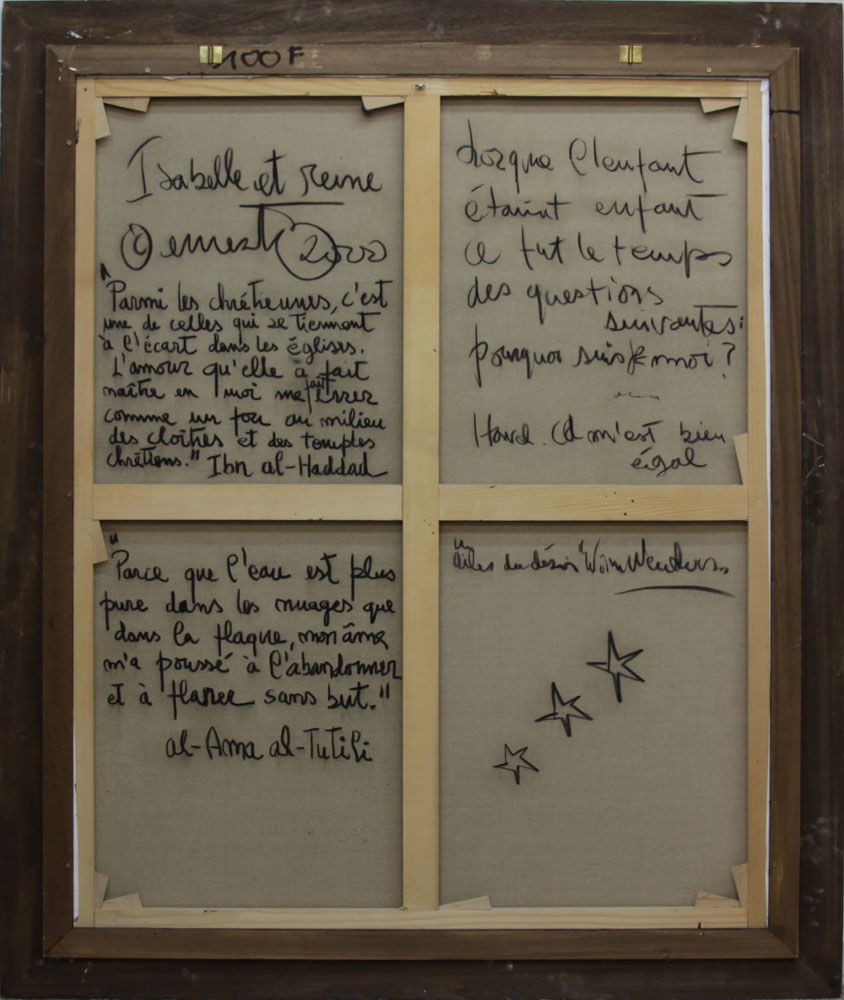 100F
Isabelle et reine
© ernest 2000
"Parmi les chrétiennes, c'est
une de celles qui se tiennent
à l'écart dans les églises.
L'amour qu'elle à fait
naître en moi me fait errer
comme un fou au milieu
des cloîtres et des temples
chrétiens." Ibn al-Haddad
Lorsque l'enfant
était enfant
ce fut le temps
des questions
suivantes:
pourquoi suis je moi?
m'est bien
égal
"Parce que l'eau est plus
pure dans les nuages que
dans la flaque, mon âme
m'a poussé à l'abandonner
et à flaner sans but."
al-Ama al-Tutili
"ailes du désir" Wim Wenders